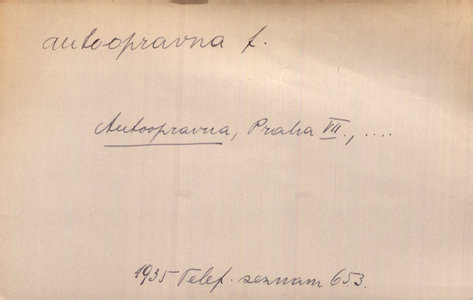 autoopravna f.
Autoopravna, Praha VII., ....
1935 Telef. seznam 653.